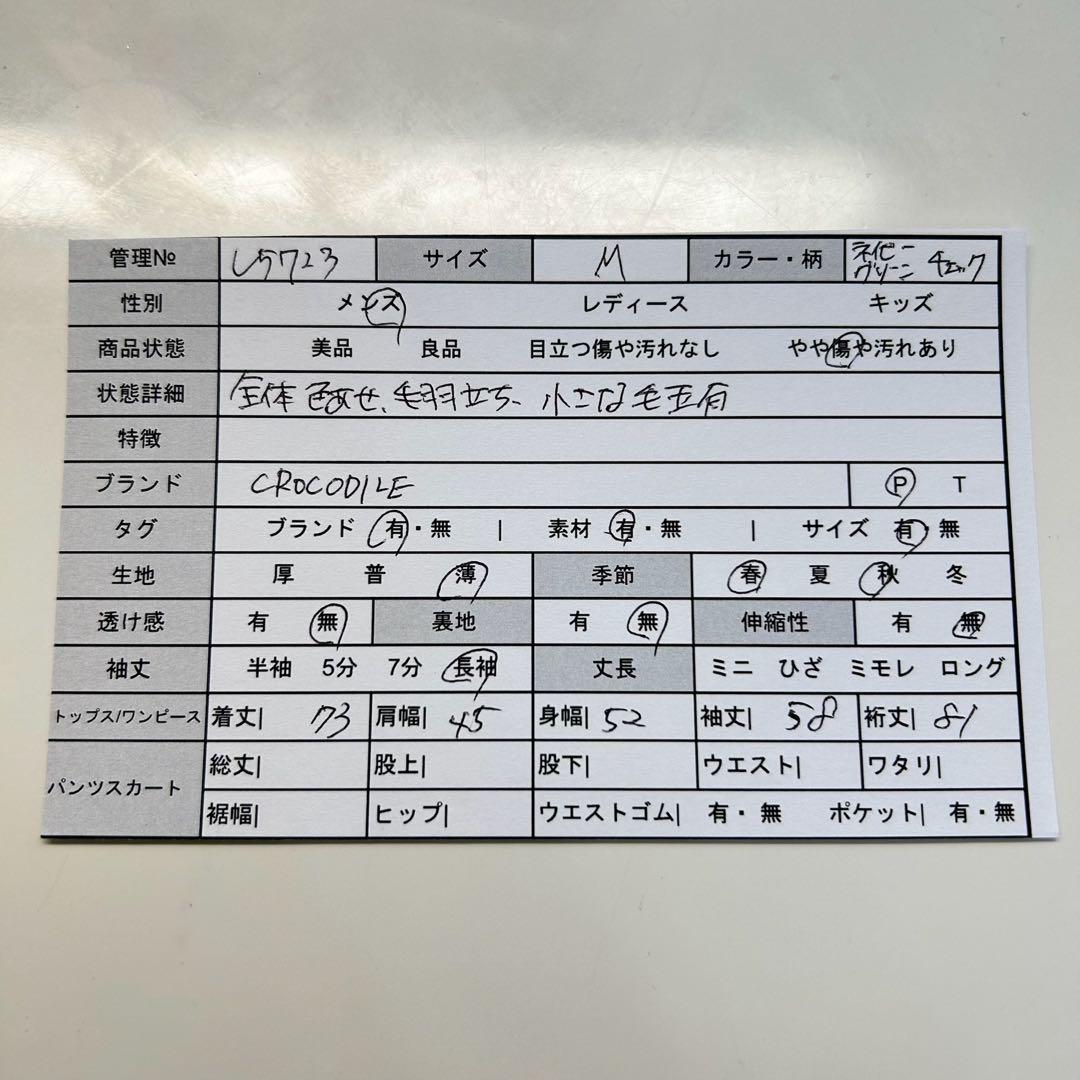 管理№ L5723 サイズ M カラー・柄 ネイビー グリーン チェック
性別 メンズ レディース キッズ
商品状態 美品 良品 目立つ傷や汚れなし やや傷や汚れあり
状態詳細 全体 色あせ、毛羽立ち、小さな毛玉有
特徴
ブランド CROCODILE P T
タグ ブランド 有・無 | 素材 有・無 | サイズ 有・無
生地 厚 普 薄 季節 春 夏 秋 冬
透け感 有 無 裏地 有 無 伸縮性 有 無
袖丈 半袖 5分 7分 長袖 丈長 ミニ ひざ ミモレ ロング
トップス/ワンピース 着丈| 73 肩幅| 45 身幅| 52 袖丈| 58 裄丈| 81
パンツスカート 総丈| 股上| 股下| ウエスト| ワタリ|
裾幅| ヒップ| ウエストゴム| 有・無 ポケット| 有・無